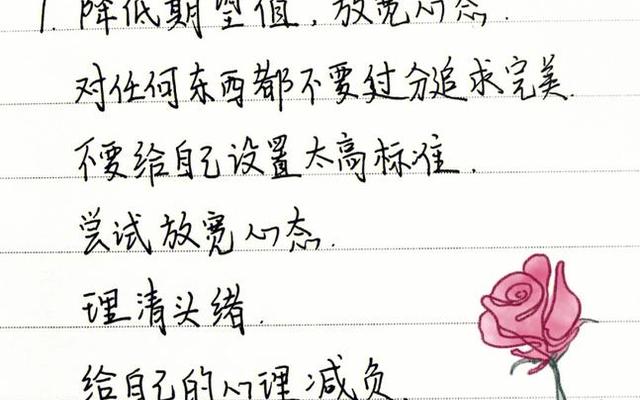 1. 降低期望值，放宽心态.
对任何东西都不要过分追求完美.
不要给自己设置太高标准.
尝试放宽心态.
理清头绪.
给自己的心理减负.